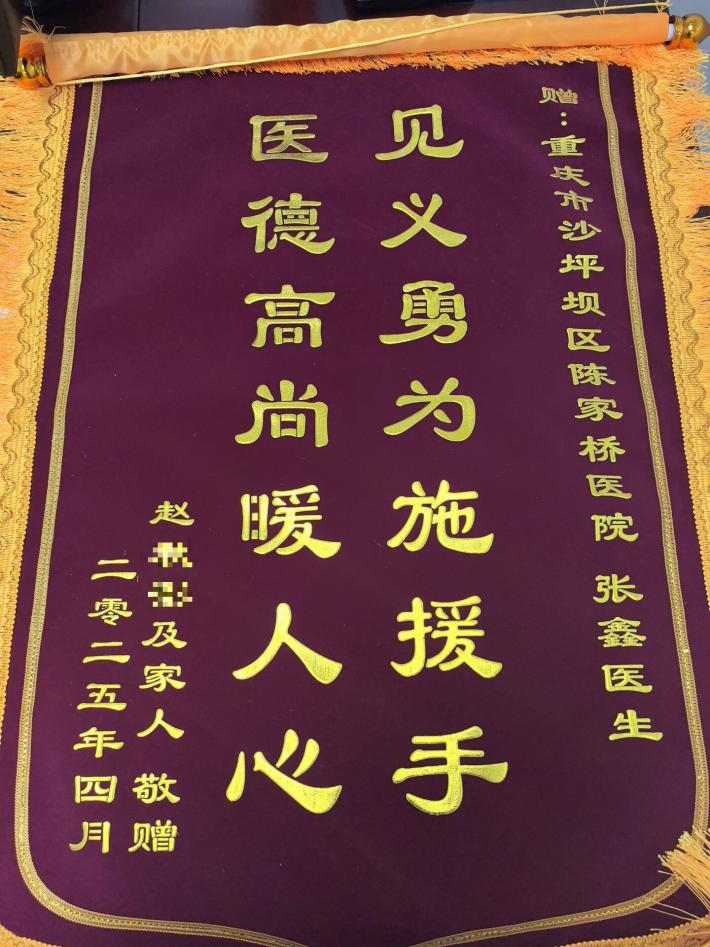 赠：重庆市沙坪坝区陈家桥医院 张鑫医生
见义勇为施援手
医德高尚暖人心
赵 及家人 敬赠
二零二五年四月